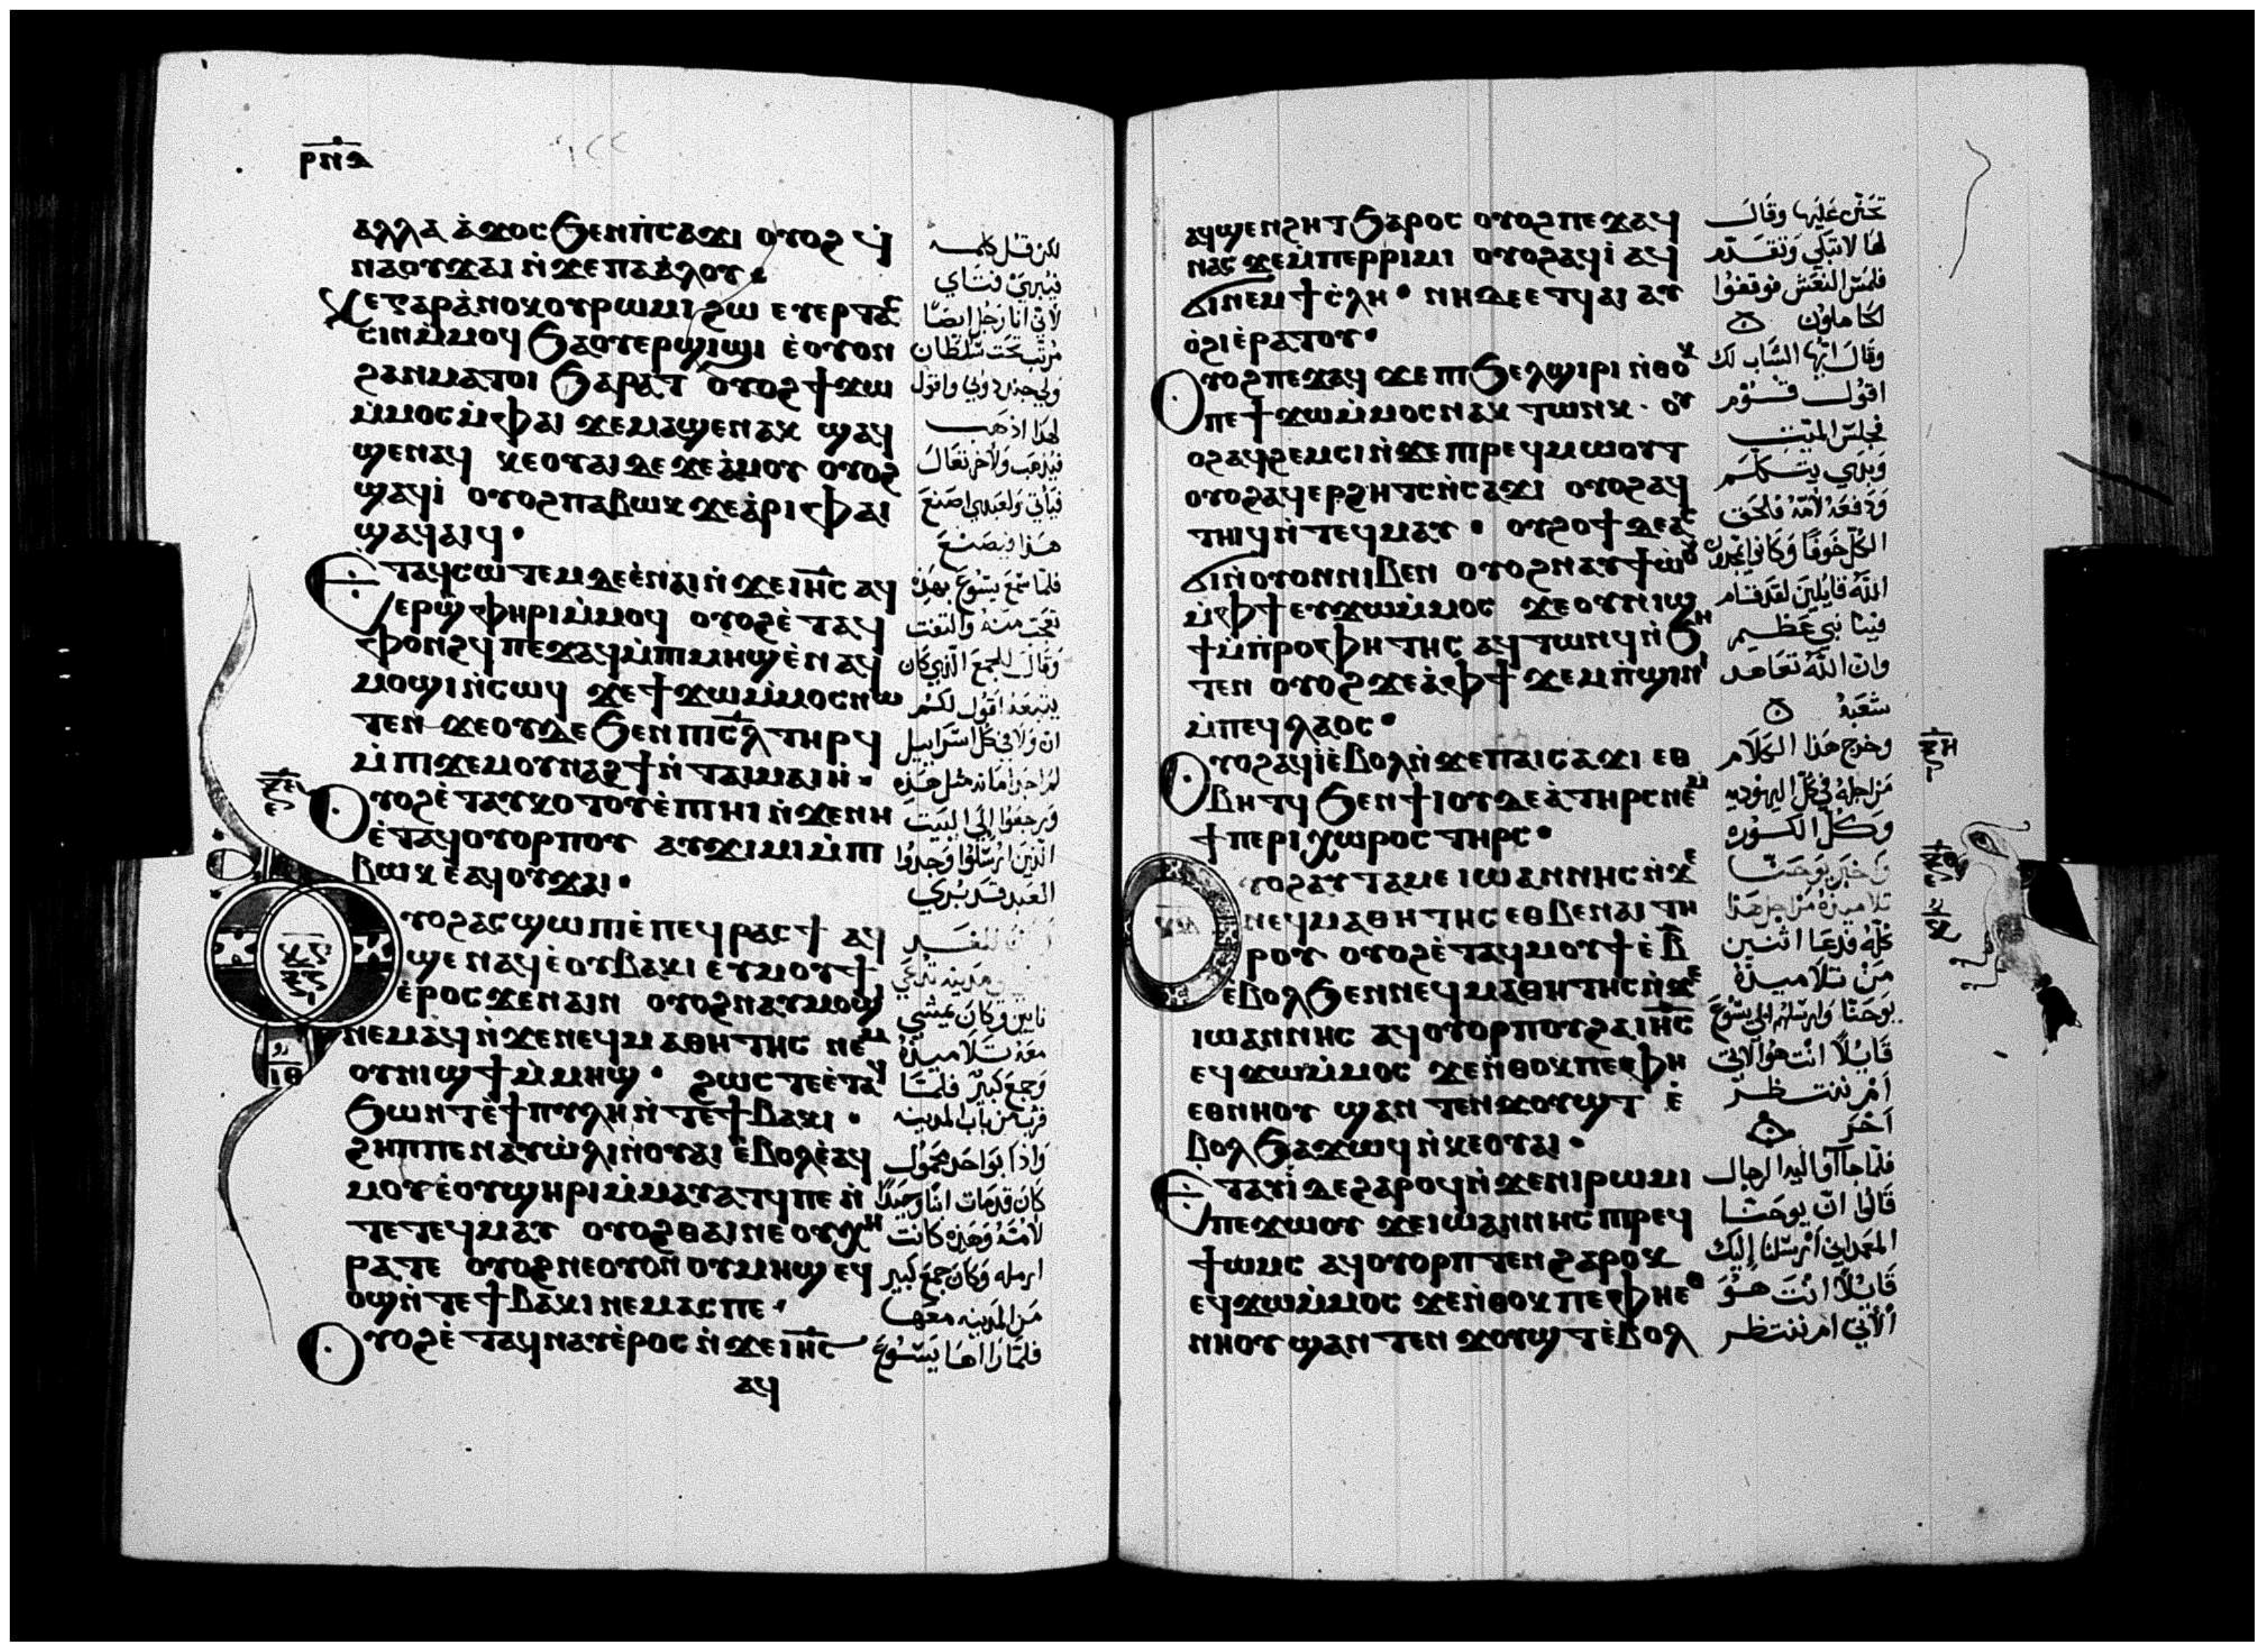 ⲣⲛⲇ
ⲁⲗⲗⲁ ⲁ̀ϫⲟⲥ ϧⲉⲛⲡⲓⲥⲁϫⲓ ⲟⲩⲟϩ ϥ̀
ⲛⲁⲟⲩϫⲁⲓ ⲛ̀ϫⲉⲡⲁⲁ̀ⲗⲟⲩ
ⲕⲉⲅⲁⲣⲁ̀ⲛⲟⲕⲟⲩⲣⲱⲙⲓ ϩⲱ ⲉⲩⲉⲣⲧⲁⲝ
ⲥⲓⲛⲙ̀ⲙⲟϥ ϧⲁⲟⲩⲉⲣϣⲓϣⲓ ⲉ̀ⲟⲩⲟⲛ
ϩⲁⲛⲙⲁⲧⲟⲓ ϧⲁⲣⲁⲧ ⲟⲩⲟϩ ϯϫⲱ
ⲙ̀ⲙⲟⲥⲙ̀ⲫⲁⲓ ϫⲉⲙⲁϣⲉⲛⲁⲕ ϣⲁϥ
ϣⲉⲛⲁϥ ⲕⲉⲟⲩⲁⲓⲇⲉ ϫⲉⲁ̀ⲙⲟⲩ ⲟⲩⲟϩ
ϣⲁϥⲓ̀ ⲟⲩⲟϩⲡⲁⲃⲱⲕ ϫⲉⲁ̀ⲣⲓⲫⲁⲓ
ϣⲁϥⲁⲓϥ
ⲉⲧⲁϥⲥⲱⲧⲉⲙⲇⲉⲉ̀ⲛⲁⲓⲛ̀ϫⲉⲓⲏⲥ ⲁϥ
ⲉⲣϣⲫⲏⲣⲓⲙ̀ⲙⲟϥ ⲟⲩⲟϩⲉ̀ⲧⲁϥ
ⲫⲟⲛϩϥ ⲡⲉϫⲁϥⲙ̀ⲡⲓⲙⲏϣⲉ̀ⲛⲁϥ
ⲙⲟϣⲓⲛ̀ⲥⲱϥ ϫⲉϯϫⲱⲙ̀ⲙⲟⲥⲛⲱ
ⲧⲉⲛ ϫⲉⲟⲩⲇⲉ ϧⲉⲛⲡⲓⲥⲗ ⲧⲏⲣϥ
ⲙ̀ⲡⲓϫⲉⲙⲟⲩⲛⲁϩϯⲛ̀ⲧⲁⲓⲙⲁⲓⲏ
ⲟⲩⲟϩⲉ̀ⲧⲁⲩⲕⲟⲧⲟⲩⲉ̀ⲡⲓⲏⲓ ⲛ̀ϫⲉⲛⲏ
ⲉ̀ⲧⲁϥⲟⲩⲟⲣⲡⲟⲩ ⲁⲩϫⲓⲙⲓⲙ̀ⲡⲓ
ⲃⲱⲕ ⲉ̀ⲁϥⲟⲩϫⲁⲓ
ⲟⲩⲟϩⲁⲥϣⲱⲡⲓⲉ̀ⲡⲉϥⲣⲁⲥϯ ⲁϥ
ϣⲉⲛⲁϥⲉ̀ⲟⲩⲃⲁⲕⲓ ⲉⲩⲙⲟⲩϯ
ⲉ̀ⲣⲟⲥϫⲉⲛⲁⲓⲛ ⲟⲩⲟϩⲛⲁⲩⲙⲟϣⲓ
ⲛⲉⲙⲁϥⲛ̀ϫⲉⲛⲉϥⲙⲁⲑⲏⲧⲏⲥ ⲛⲉⲙ
ⲟⲩⲛⲓϣϯⲙ̀ⲙⲏϣ ϩⲱⲥⲧⲉⲉ̀ⲧⲁϥ
ϧⲱⲛⲧⲉ̀ϯⲡⲩⲗⲏⲛ̀ⲧⲉϯⲃⲁⲕⲓ
ϩⲏⲡⲡⲉⲛⲁⲩⲱ̀ⲗⲓⲛ̀ⲟⲩⲁⲓ ⲉ̀ⲃⲟⲗⲉ̀ⲁϥ
ⲙⲟⲩⲉ̀ⲟⲩϣⲏⲣⲓⲙ̀ⲙⲁⲩⲁⲧϥⲡⲉ ⲛ̀
ⲧⲉⲧⲉϥⲙⲁⲩ ⲟⲩⲟϩⲑⲁⲓⲛⲉ ⲟⲩⲭⲏ
ⲣⲁⲧⲉ ⲟⲩⲟϩⲛⲉⲟⲩⲟⲛ ⲟⲩⲙⲏϣ ⲉϥ
ⲟϣⲛ̀ⲧⲉϯⲃⲁⲕⲓ ⲛⲉⲙⲁⲥⲡⲉ
ⲟⲩⲟϩⲉ̀ⲧⲁϥⲛⲁⲩⲉ̀ⲣⲟⲥ ⲛ̀ϫⲉⲓⲏⲥ
ⲁϥ
لكن قل كلمه
فيبرئ فتاي
لاني انا رجل ايضًا
مرتب تحت سلطان
ولي جند دوني واقول
لهذا اذهب
فيذهب ولاخر تعال
فياتي ولعبدي اصنع
هذا فيصنع
فلما سمع يسوع بهذه
تعجب منه والتفت
وقال للجمع الذي كان
يتبعه اقول لكم
ان ولا في كل اسراييل
لم اجد امانه مثل هذه
ورجعوا الى البيت
الذين ارسلوا وجدوا
العبد قد بري
مدينه تدعي
نايين وكان يمشي
معه تلاميذه
وجمع كبير فلما
قرب من باب المدينه
واذا بواحد محمول
كان قد مات ابنًا وحيدًا
لامه وهذه كانت
ارمله وكان جمع كبير
من المدينه معها
فلما راها يسوع
ⲁϥϣⲉⲛϩⲏⲧ ϧⲁⲣⲟⲥ ⲟⲩⲟϩⲡⲉϫⲁϥ
ⲛⲁⲥ ϫⲉⲙ̀ⲡⲉⲣⲣⲓⲙⲓ ⲟⲩⲟϩⲁϥⲓ̀ ⲁϥ
ϭⲓⲛⲉⲙϯⲥ̀ⲗⲏ ⲛⲏⲇⲉⲉⲧϥⲁⲓ ⲁⲩ
ⲟ̀ϩⲓⲉ̀ⲣⲁⲧⲟⲩ
ⲟⲩⲟϩⲡⲉϫⲁϥ ϫⲉⲡⲓϧⲉⲗϣⲓⲣⲓ ⲛ̀ⲑⲟⲕ
ⲡⲉϯϫⲱⲙ̀ⲙⲟⲥⲛⲁⲕ ⲧⲱⲛⲕ ⲟⲩ
ⲟϩⲁϥϩⲉⲙⲥⲓⲛ̀ϫⲉⲡⲓⲣⲉϥⲙⲱⲟⲩⲧ
ⲟⲩⲟϩⲁϥⲉⲣϩⲏⲧⲥⲛ̀ⲥⲁϫⲓ ⲟⲩⲟϩⲁϥ
ⲧⲏⲓϥⲛ̀ⲧⲉϥⲙⲁⲩ ⲟⲩϩⲟϯⲇⲉⲁⲥ
ϭⲓⲛ̀ⲟⲩⲟⲛⲛⲓⲃⲉⲛ ⲟⲩⲟϩⲛⲁⲩϯⲱ̀ⲟⲩ
ⲙ̀ⲫϯ ⲉⲩϫⲱⲙ̀ⲙⲟⲥ ϫⲉⲟⲩⲛⲓϣ
ϯⲙ̀ⲡⲣⲟⲫⲏⲧⲏⲥ ⲁϥⲧⲱⲛϥⲛ̀ϧⲏ
ⲧⲉⲛ ⲟⲩⲟϩ ϫⲉⲁ̀ⲫϯ ϫⲉⲙⲡ̀ϣⲓⲛⲓ
ⲙ̀ⲡⲉϥⲗⲁⲟⲥ
ⲟⲩⲟϩⲁϥⲓ̀ⲉ̀ⲃⲟⲗⲛ̀ϫⲉⲡⲁⲓⲥⲁϫⲓ ⲉⲑ
ⲃⲏⲧϥ ϧⲉⲛϯⲓⲟⲩⲇⲉⲁ̀ⲧⲏⲣⲥⲛⲉⲙ
ϯⲡⲉⲣⲓⲭⲱⲣⲟⲥ ⲧⲏⲣⲥ
ⲟⲩⲟϩⲁⲩⲧⲁⲙⲉ ⲓⲱⲁⲛⲛⲏⲥⲛ̀ϫⲉ
ⲛⲉϥⲙⲁⲑⲏⲧⲏⲥ ⲉⲑⲃⲉⲛⲁⲓ ⲧⲏ
ⲣⲟⲩ ⲟⲩⲟϩⲉ̀ⲧⲁϥⲙⲟⲩϯⲉ̀ⲃ̅
ⲉ̀ⲃⲟⲗϧⲉⲛⲛⲉϥⲙⲁⲑⲏⲧⲏⲥⲛ̀ϫⲉ
ⲓⲱⲁⲛⲛⲏⲥ ⲁϥⲟⲩⲟⲣⲡⲟⲩϩⲁⲓⲏⲥ
ⲉϥϫⲱⲙ̀ⲙⲟⲥ ϫⲉⲛ̀ⲑⲟⲕⲡⲉⲫⲏ
ⲉⲑⲛⲏⲟⲩ ϣⲁⲛ ⲧⲉⲛϫⲟⲩϣⲧ ⲉ̀
ⲃⲟⲗϧⲁϫⲱϥ ⲛ̀ⲕⲉⲟⲩⲁⲓ
ⲉⲧⲁⲩⲓ̀ ⲇⲉϩⲁⲣⲟϥⲛ̀ϫⲉⲛⲓⲣⲱⲙⲓ
ⲡⲉϫⲱⲟⲩ ϫⲉⲓⲱⲁⲛⲛⲏⲥ ⲡⲓⲣⲉϥ
ϯⲱⲙⲥ ⲁϥⲟⲩⲟⲣⲡⲧⲉⲛ ϩⲁⲣⲟⲕ
ⲉϥϫⲱⲙ̀ⲙⲟⲥ ϫⲉⲛ̀ⲑⲟⲕⲡⲉⲫⲏⲉⲑ
ⲛⲏⲟⲩ ϣⲁⲛ ⲧⲉⲛ ϫⲟⲩϣⲧⲉ̀ⲃⲟⲗ
تحنن عليها وقال
لها لا تبكي وتقدم
فلمس النعش فوقفوا
الحاملون
وقال ايها الشاب لك
اقول قم
فجلس الميت
وبدي يتكلم
ودفعه لامه فلحق
الكل خوفا وكانوا يمجدون
الله قايلين لقد قام
فينا نبي عظيم
وان الله تعاهد
شعبه
وخرج هذا الكلام
من اجله في كل اليهوديه
وكل الكوره
وخبر يوحنا
تلاميذه من اجل هذا
كله فدعا اثنين
من تلاميذه
يوحنا وارسلهم الي يسوع
قايلًا انت هو الاتي
ام ننتظر
آخر
فلما جاآ اليه الرجال
قالوا ان يوحنا
المعمداني ارسلنا إليك
قايلًا انت هو
الآتي ام ننتظر